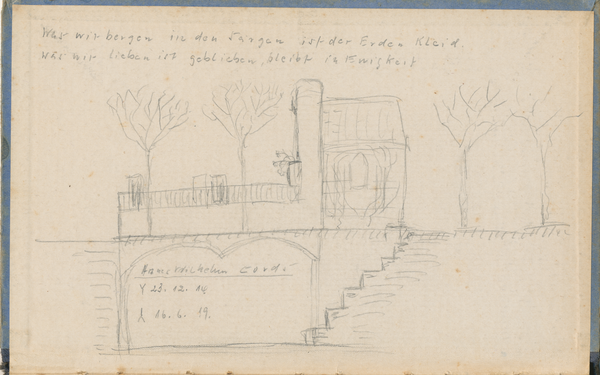 Was wir bergen in den Särgen ist der Erden Kleid.
Was wir lieben ist geblieben, bleibt in Ewigkeit
Cordé
Y 23. 12. 14
⅄ 16. 6. 19.